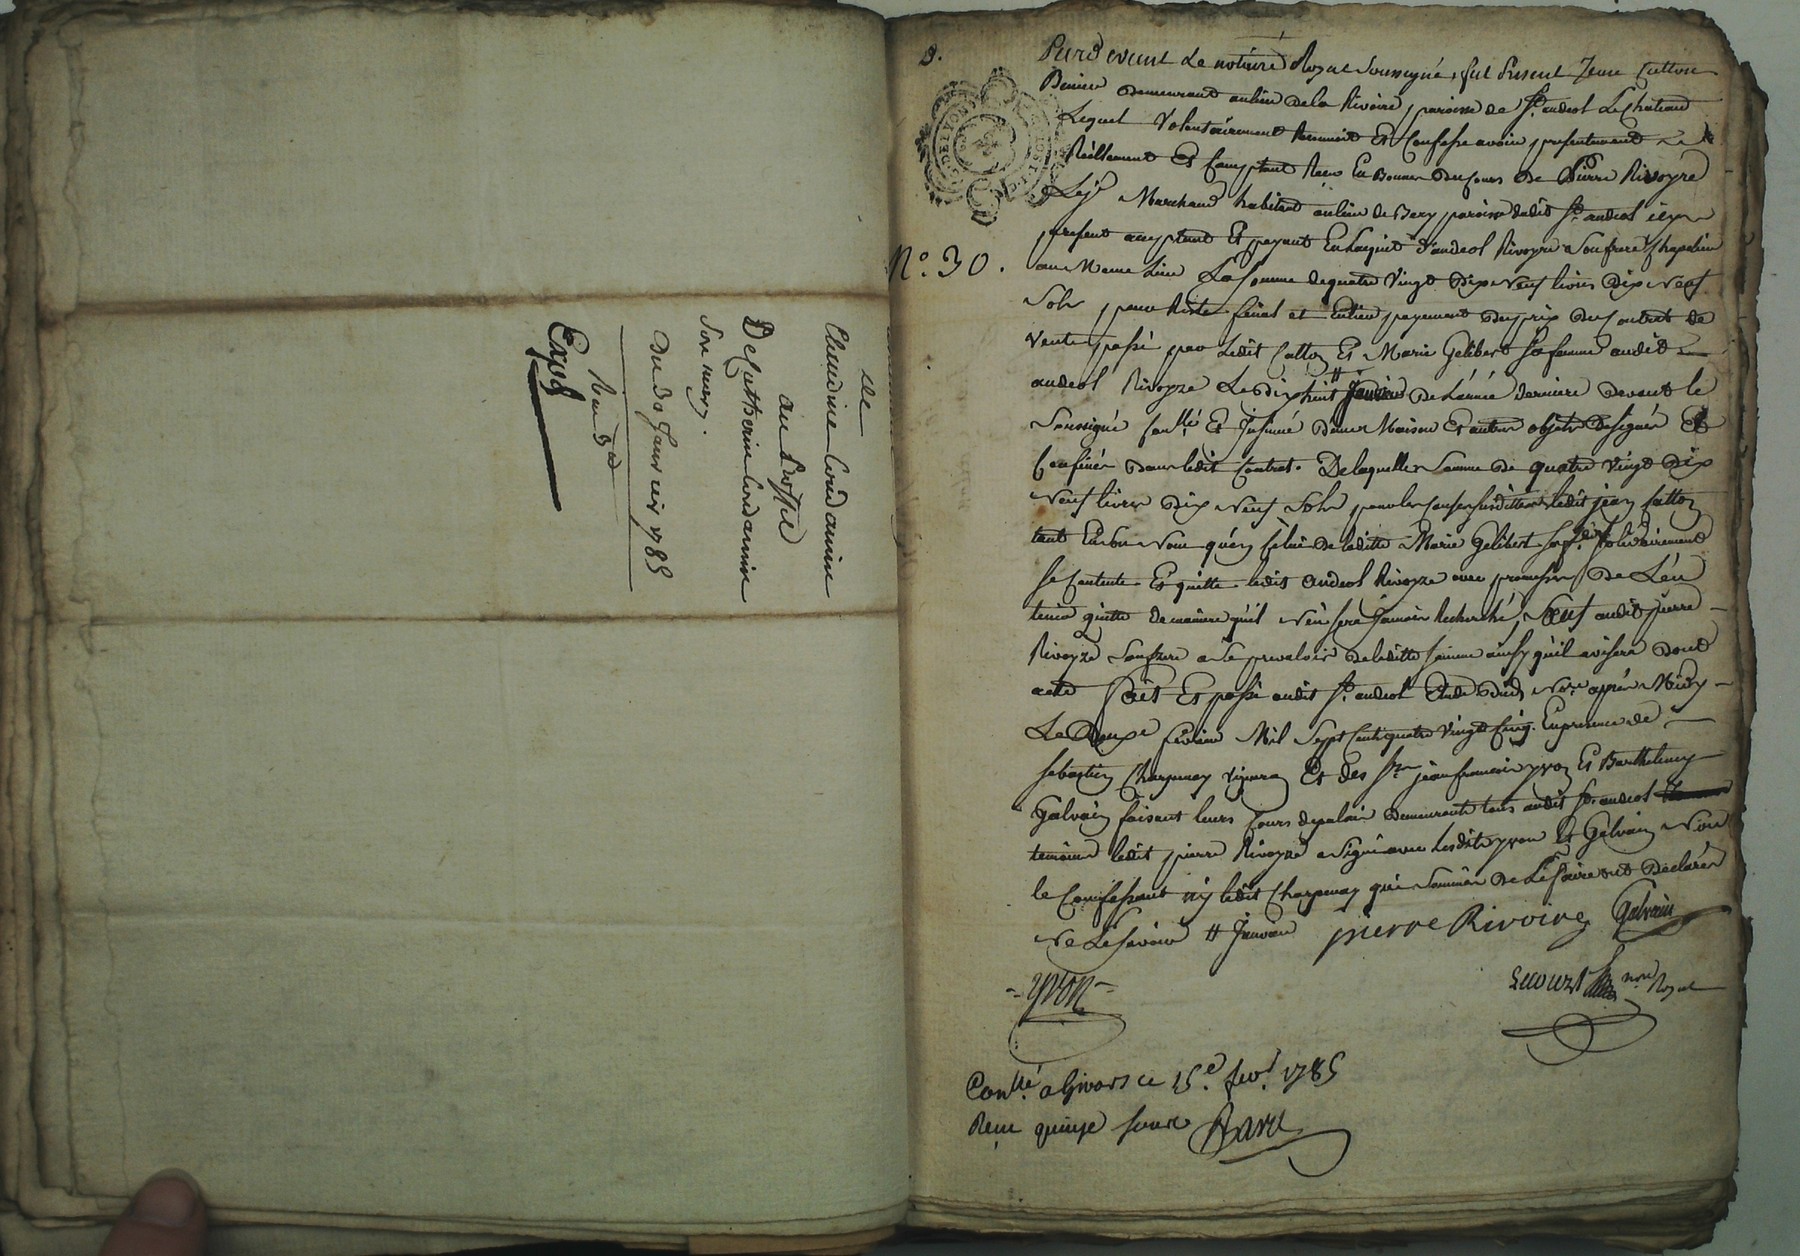 Clemdine Cordamine
au proffit
De Catherine Cordamine
Son mary.
du 30 Janvier 1785
Exp.d
N.o 30.
Pardevant Le notaire Royal Soussigné, fut Présent Jean Catton
demeurant au lieu de la Rivoire, paroisse de St. andeol Le chateau
Lequel Volontairement Reconnoit Et Confesse avoir presentement
Réellement Et Comptant Reçu En Bonnes du Cours de Pierre Rivoyre
Marchand habitant au lieu de paroisse dudit St. andeol icy
present acceptant Et payant En Lacquit d'andeol Rivoyre Son frere Chapelier
au Meme Lieu La Somme de quatre Vingt Dix Neuf livres Dix Neuf
Sols pour Reste final et Entier payement du prix du Contrat de
Vente passé par Ledit Catton Et Marie Gelibert Sa femme audit
andeol Rivoyre Le Dix huit # Janvier De L'année derniere devant le
Soussigné Conllé Et Insinué Dance Maison Et autres objets Designés Et
Confinés dans ledit Contrat. De laquelle Somme de quatre Vingt Dix
Neuf livres Dix Neuf Sols pour les Causes susdittes ledit jean Catton
tant En Son Nom qu'en Celui de laditte Marie Gelibert sa fe. Solidairement
se Contente Et quitte ledit andeol Rivoyre avec promesse De L'en
tenir quitte de maniere qu'il N'en sera Jamais Recherché, Sauf audit pierre
Rivoyre Son frere a Se prevaloir de laditte Somme ainsy qu'il avisera Dont
acte fait Et passé audit St. andeol Etude Dudt Nre. après Midy
Le Douze février Mil Sept Cent quatre Vingt Cinq. En presence de
sebastien Charpenay Vigneron Et des Srs jean francois yvon Et Barthelemy
Galvain faisant leurs Cours depalais Demeurants tous audit St. andeol
temoins ledit pierre Rivoyre a Signé avec Lesdits yvon Et Galvain Non
le Confessant ny ledit Charpenay qui Sommés De Le faire ont Declarés
Ne Le Savoir # Janvier pierre Rivoire Galvain
yvon
Lecourt nore Royal
Conllé a Givors ce 15e. fevr. 1785
Reçu quinze sous Bard